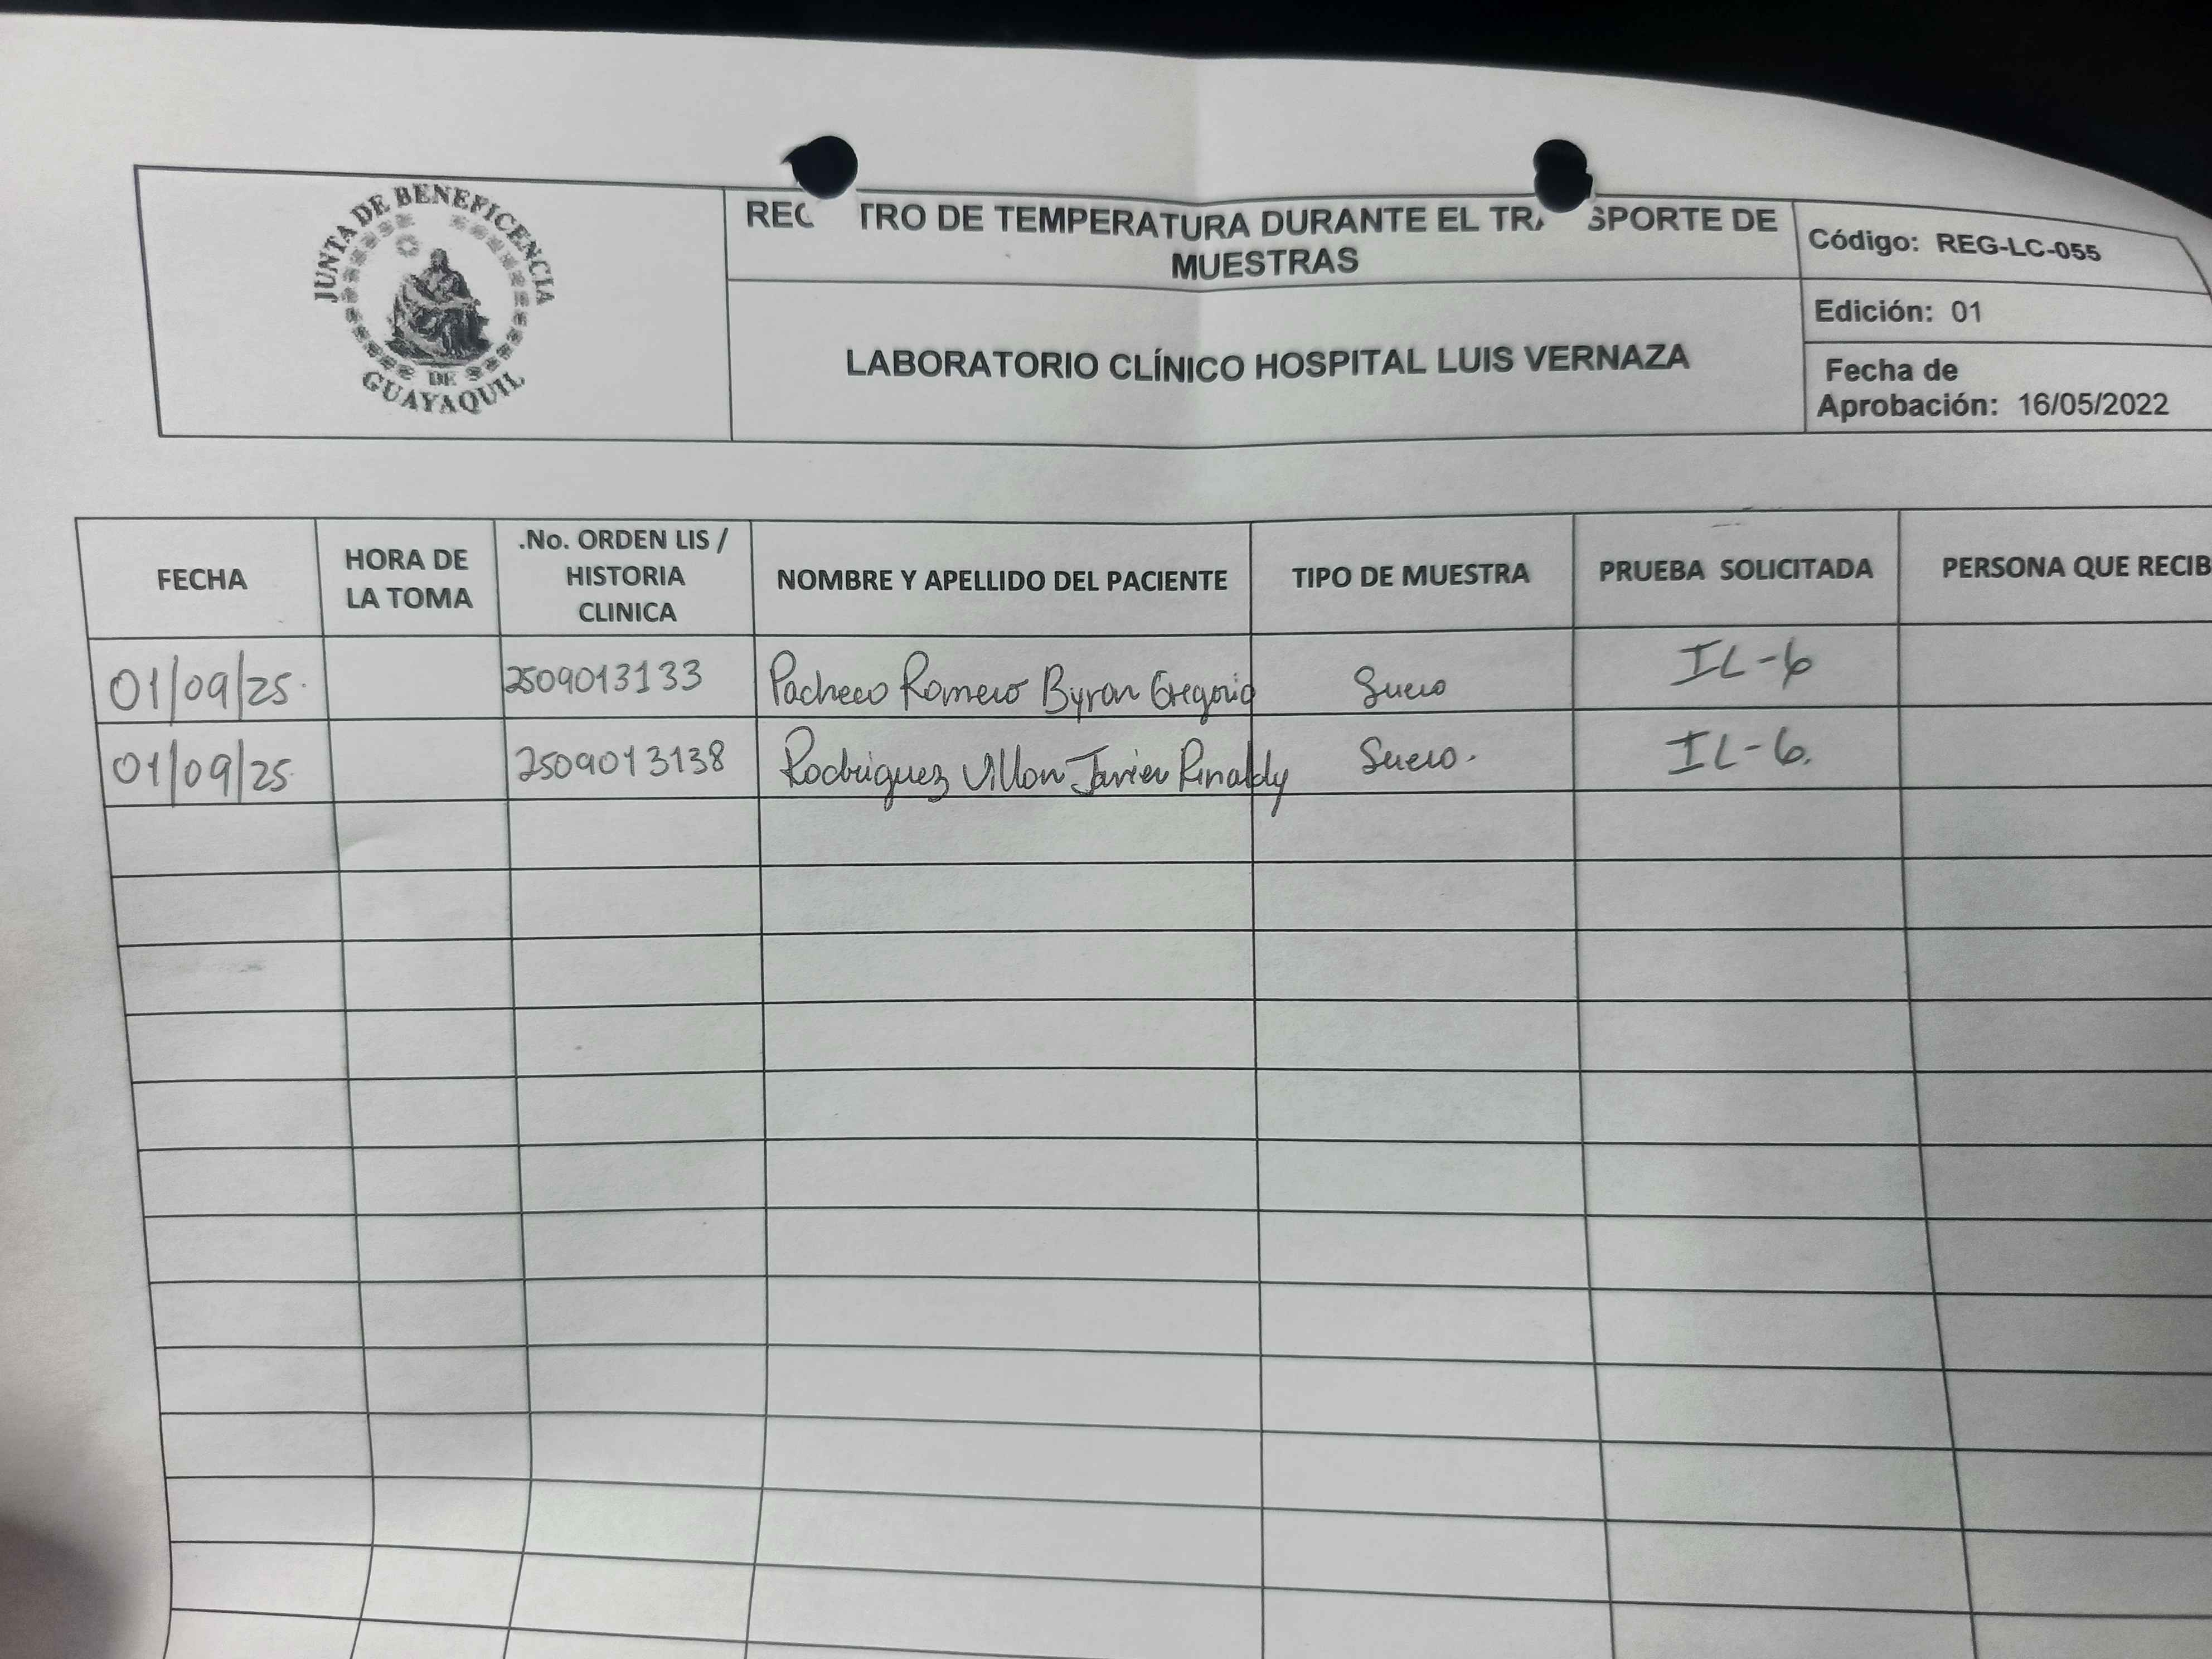 JUNTA DE BENEFICENCIA
DE
GUAYAQUIL
REG TRO DE TEMPERATURA DURANTE EL TRA SPORTE DE
MUESTRAS
LABORATORIO CLÍNICO HOSPITAL LUIS VERNAZA
Código: REG-LC-055
Edición: 01
Fecha de
Aprobación: 16/05/2022
FECHA
HORA DE
LA TOMA
.No. ORDEN LIS /
HISTORIA
CLINICA
NOMBRE Y APELLIDO DEL PACIENTE
TIPO DE MUESTRA
PRUEBA SOLICITADA
PERSONA QUE RECIB
01/09/25. 2509013133 Pacheco Romero Byron Gregorio Suero IL-6
01/09/25. 2509013138 Rodriguez Villon Javier Rinaldy Suero. IL-6.